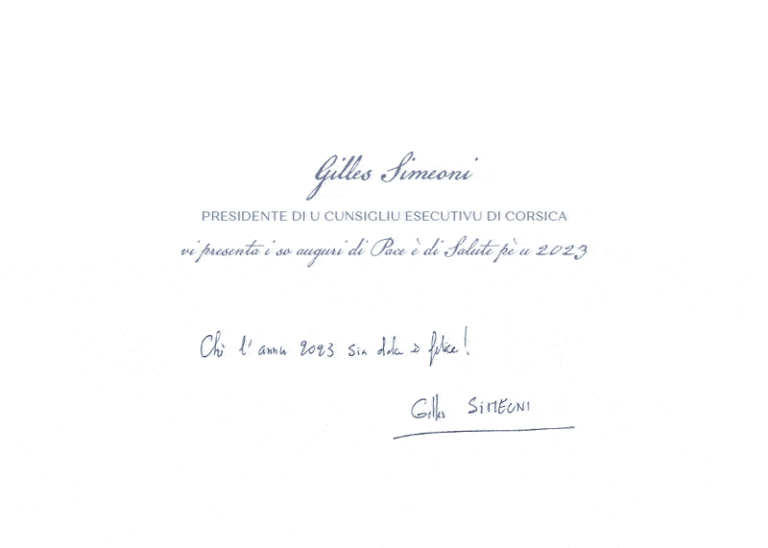 Gilles Simeoni
PRESIDENTE DI U CUNSIGLIU ESECUTIVU DI CORSICA
vi presenta i so auguri di Pace è di Salute pè u 2023
Chì l'annu 2023 sia dolce è felice!
Gilles SIMEONI